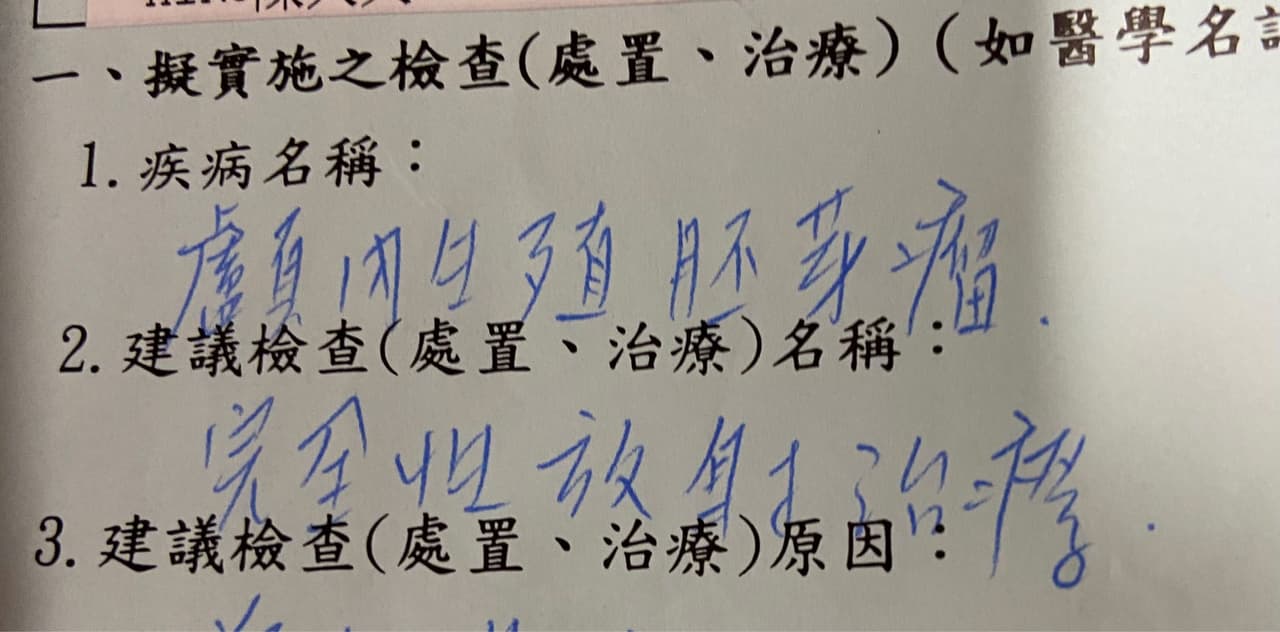 一、擬實施之檢查(處置、治療)(如醫學名
1.疾病名稱：
顱內生殖胚芽瘤.
2.建議檢查(處置、治療)名稱：
完全性放射治療.
3.建議檢查(處置、治療)原因：